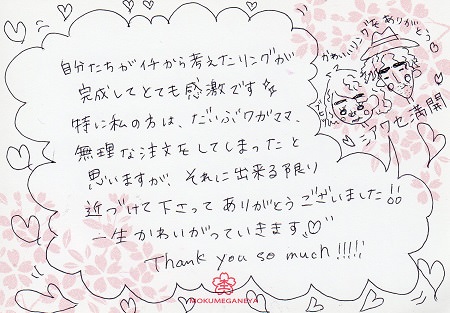 自分たちがイチから考えたリングが
完成してとても感激です
特に私の方は、だいぶワガママ、
無理な注文をしてしまったと
思いますが、それに出来る限り
近づけて下さってありがとうございました!!
一生かわいがっていきます。
Thank you so much!!!!!
かわいいリングをありがとう
シアワセ満開
MOKUMEGANEYA